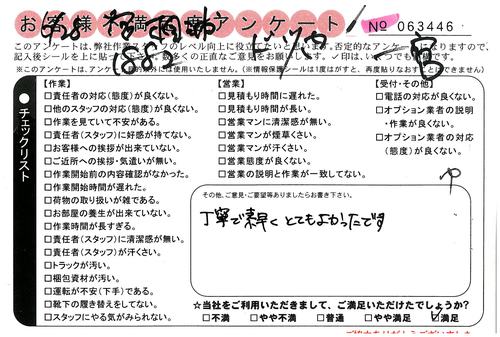 お客様不満足度アンケート
№ 063446
このアンケートは、弊社作業スタッフのレベル向上に役立てたいと思います。否定的なアンケートになりますので、
記入後シールを上に貼って
数多くの正直なご意見をお願いします。✓印は、いくつでも結構です。
※このアンケートは、アンケート
目的以外には使用いたしません。(※情報保護シールは1度はがすと、再度貼りなおすことはできません)
チェックリスト
【作業】
□責任者の対応(態度)が良くない。
□他のスタッフの対応(態度)が良くない。
□作業を見ていて不安がある。
□責任者(スタッフ)に好感が持てない。
□お客様への挨拶が出来ていない。
□ご近所への挨拶・気遣いが無い。
□作業開始前の内容確認がなかった。
□作業開始時間が遅れた。
□荷物の取り扱いが雑である。
□お部屋の養生が出来ていない。
□作業時間が長すぎる。
□責任者(スタッフ)に清潔感が無い。
□責任者(スタッフ)が汗くさい。
□トラックが汚い。
□梱包資材が汚い。
□運転が不安(下手)である。
□靴下の履き替えをしてない。
□スタッフにやる気がみられない。
【営業】
□見積もり時間に遅れた。
□見積もり時間が長い。
□営業マンに清潔感が無い。
□営業マンが煙草くさい。
□営業マンが汗くさい。
□営業態度が良くない。
□営業の説明と作業が一致してない。
【受付・その他】
□電話の対応が良くない。
□オプション業者の説明
・作業が良くない。
□オプション業者の対応
(態度)が良くない。
その他、ご意見・ご要望等ありましたらお書き下さい。
丁寧で素早くとてもよかったです
☆当社をご利用いただきまして、ご満足いただけたでしょうか?
□不満 □やや不満 □普通 □やや満足 ☑満足